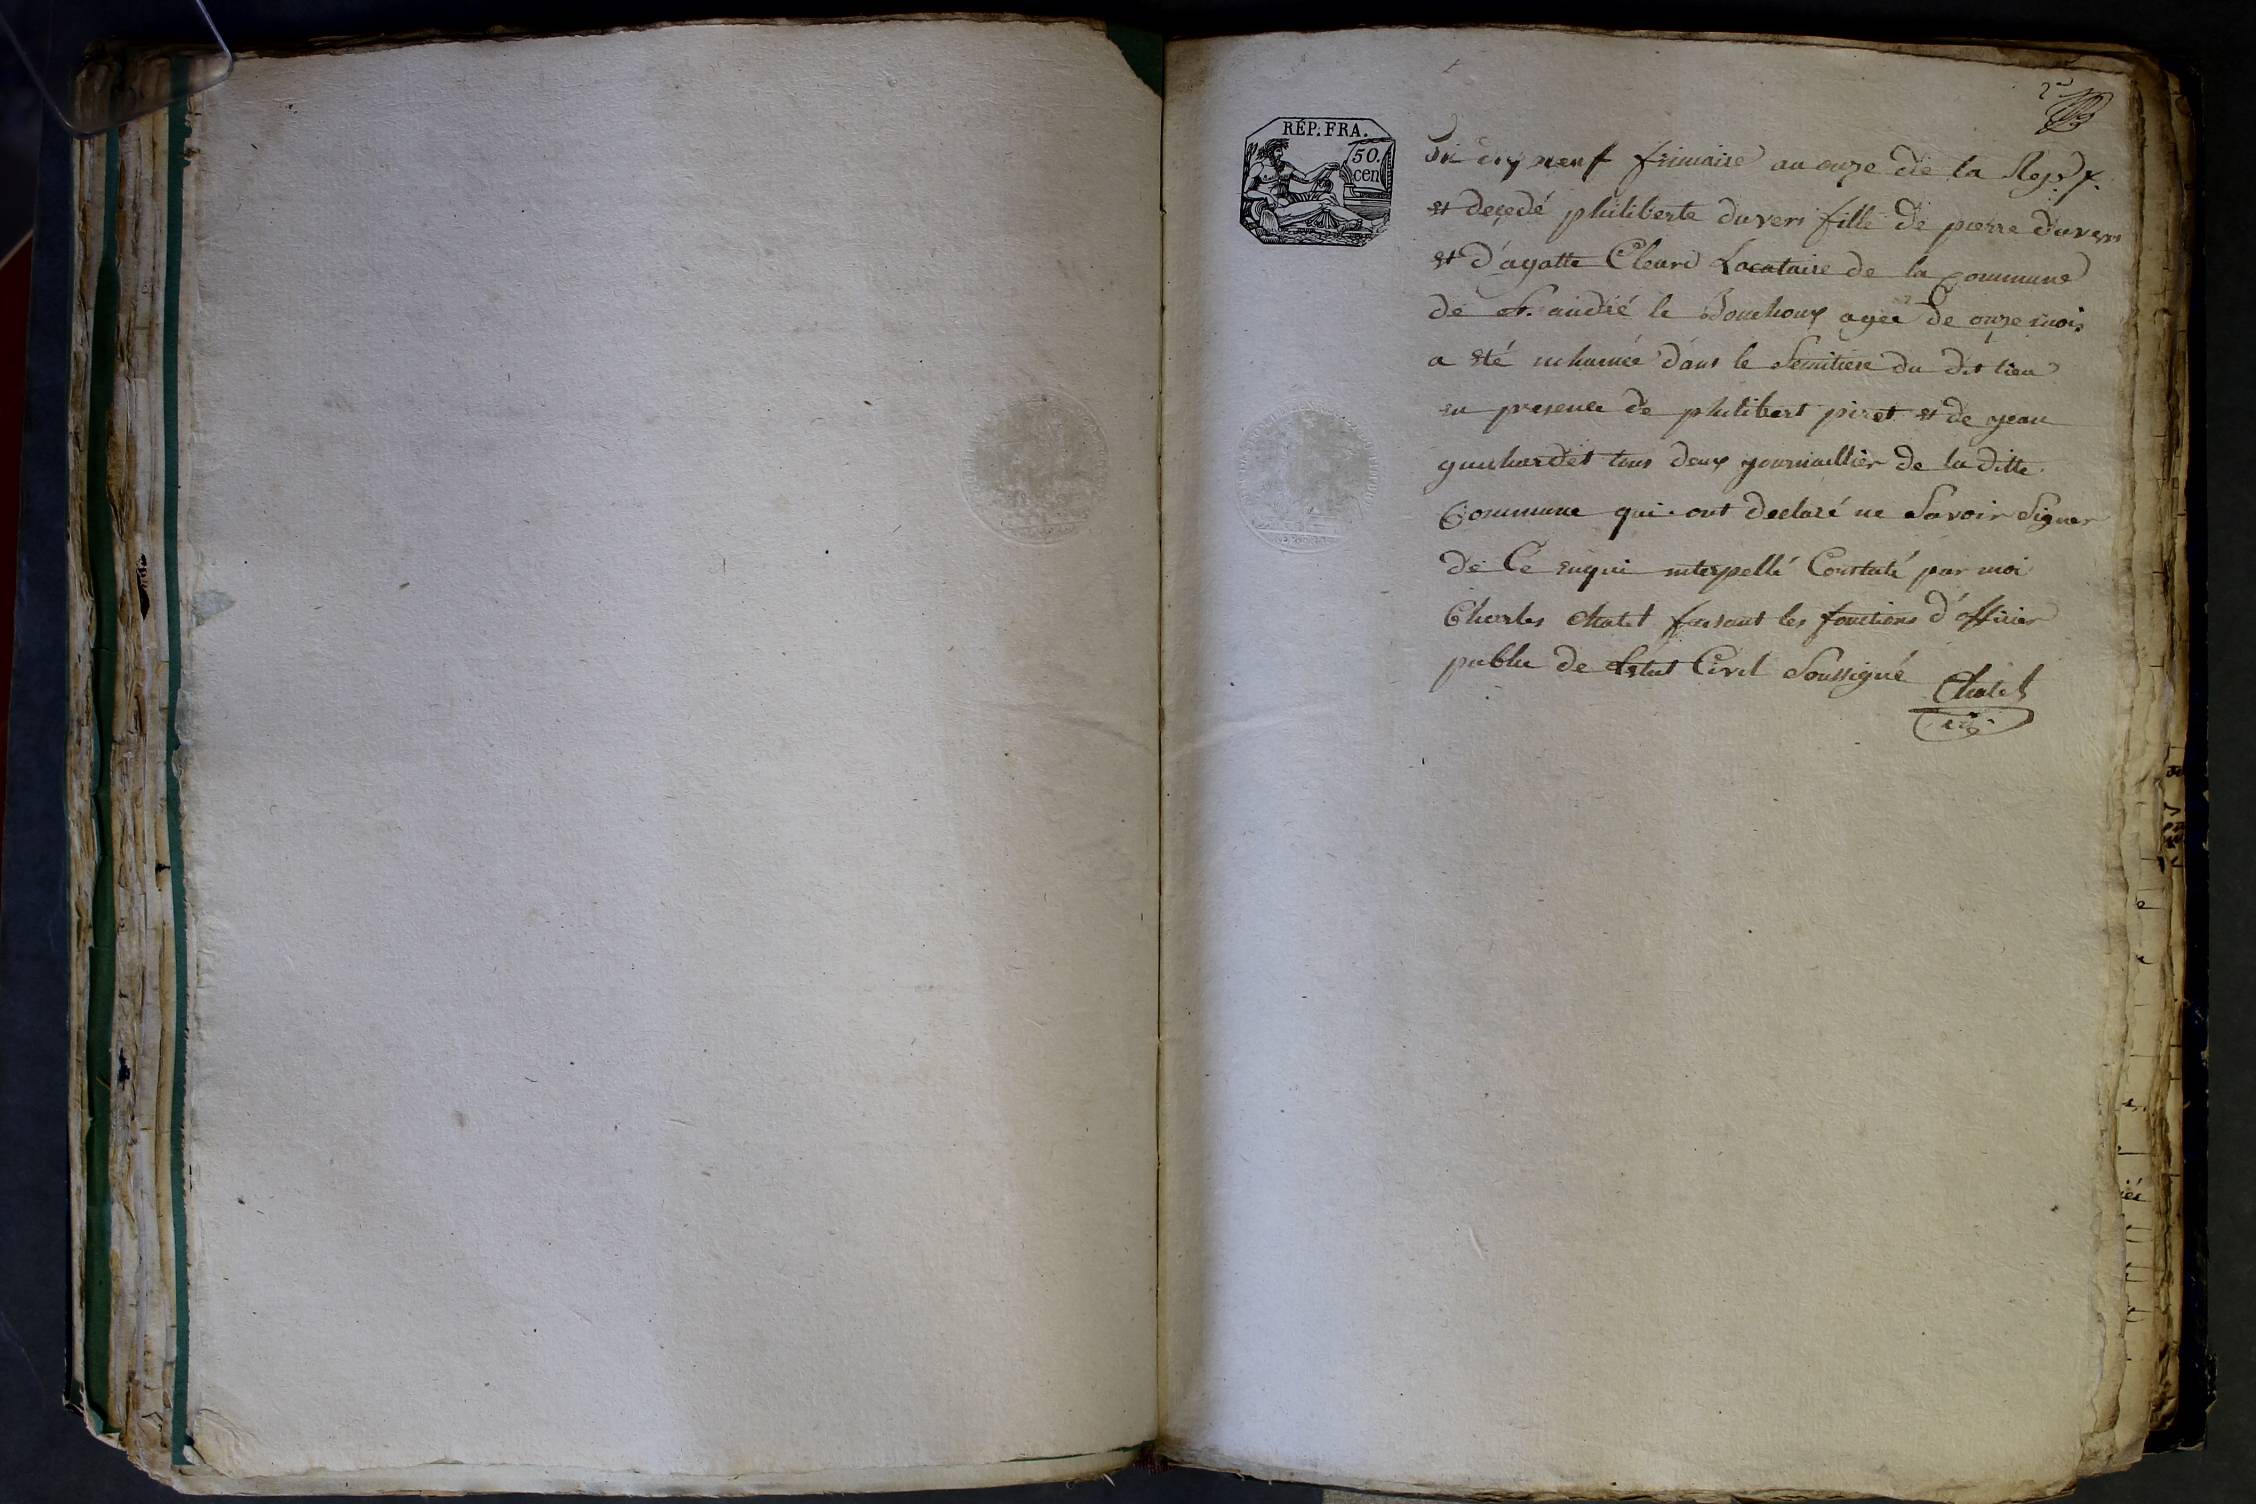 2e
RÉP. FRA.
50.
cen
Du dix neuf frimaire an onze de la Rep. f.
et decedé philiberte duvers fille de pierre duvers
et d'agatte Cleard Locataire de la commune
de st. andré le Bouchoux agée de onze mois
a été inhumée dans le Semitiere du dit lieu
en presence de philibert piret et de jean
guichardet tous deux journaillier de la ditte
Commune qui ont declaré ne Savoir Signer
de Ce enqui interpellé Constaté par moi
Charles Chatel faisant les fonctions d'officier
public de l'etat Civil Soussigné
Chatel